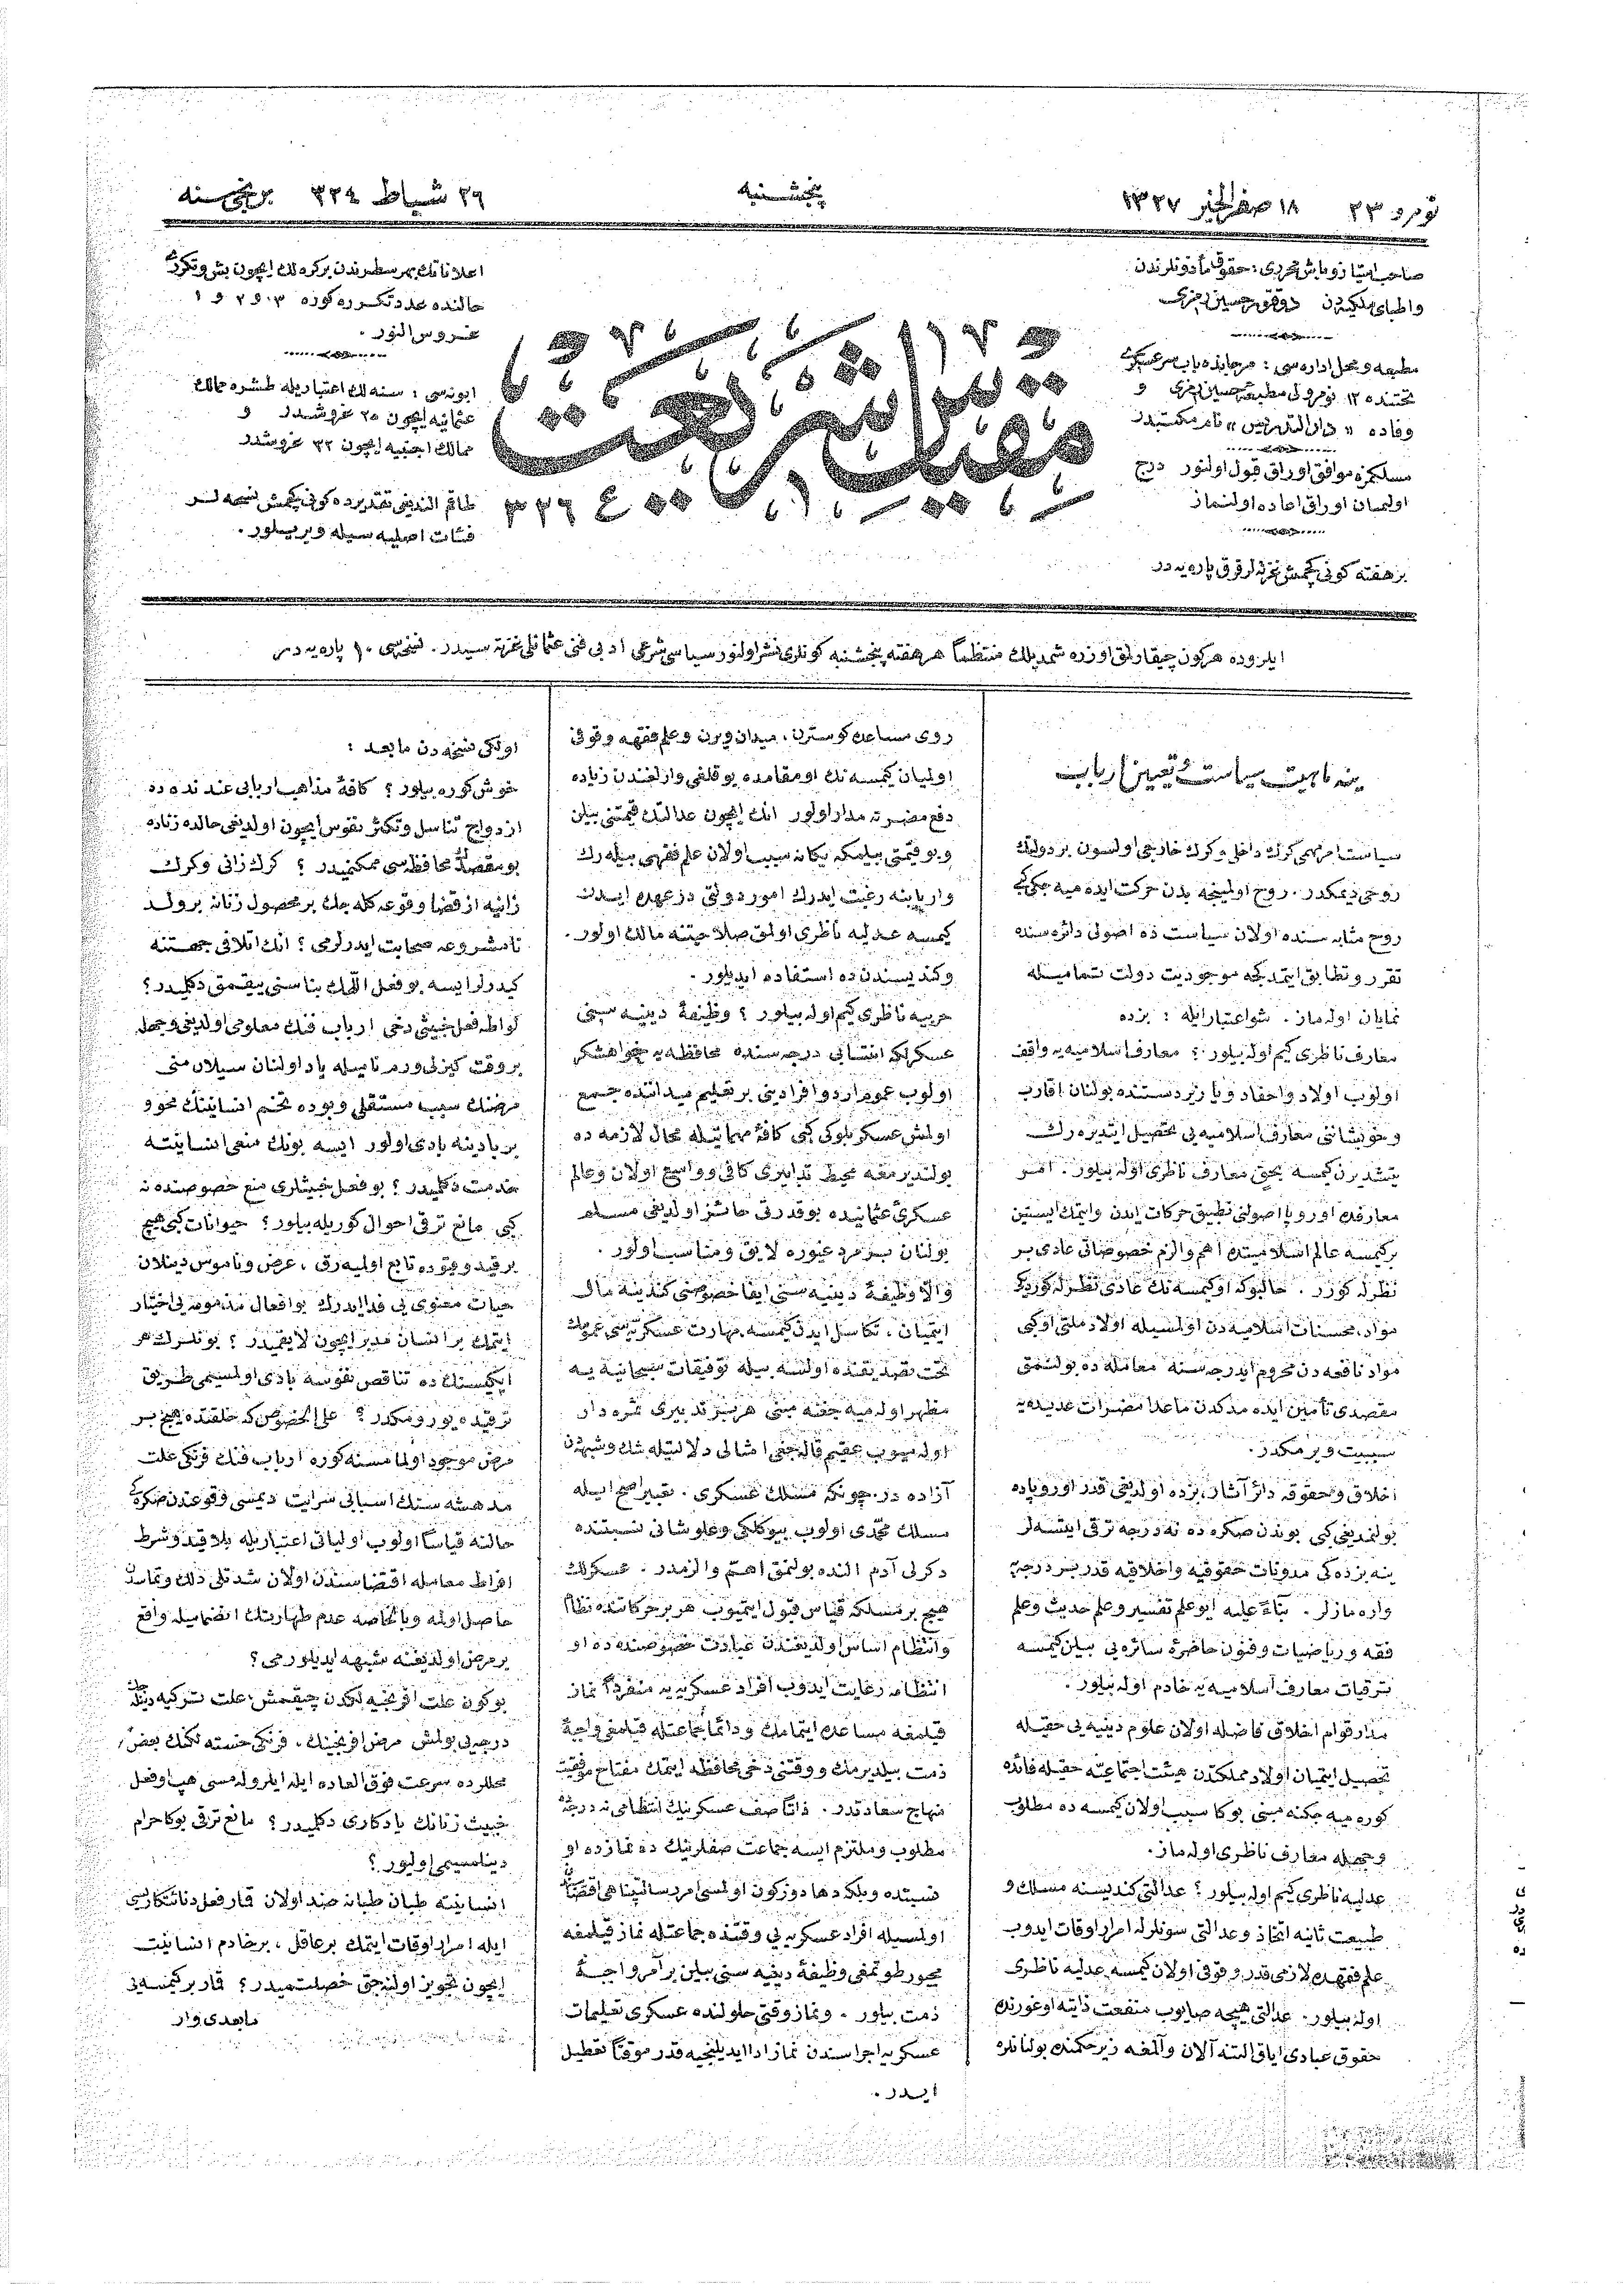 نومرو ٢٣
١٨ صفر الخير ١٣٢٧
پنجشنبه
٢٦ شباط ٣٢٤
برنجى سنه
صاحب امتياز و باش محررى: حقوق مأذونلرندن
واطباى ملكيه دن دوقتور حسين رمزى
مطبعه و محل اداره سى: مرجانده باب سرعسكرى
تحتنده ١٢ نومرولى مطبعۀ حسين رمزى و
وفاده « دار التدريس » نام مكتبدر
مسلكمزه موافق اوراق قبول اولنور درج
اولنميان اوراق اعاده اولنماز
بر هفته كونى كچمش غزته لر قرق پاره يه در
مقياس شريعت
٣٢٦
اعلاناتك بهر سطرندن بر كره لك ايچون بش و تكررى
حالنده عدد تكرره كوره ٣ و ٢ و ١
غروش النور.
ابونه سى: سنه لك اعتباريله طشره ممالك
عثمانيه ايچون ٢٥ غروشدر و
ممالك اجنبيه ايچون ٣٢ غروشدر
طاقم الندیغى تقديرده كونى كچمش نسخه لر
فئات اصليه سيله ويريلور.
ايلروده هركون چيقارلمق اوزره شمديلك منتظماً هر هفته پنجشنبه كونلرى نشر اولنور سياسى شرعى ادبى فنى عثمانلى غزته سيدر. نسخه سى ١٠ پاره يه در
ينه ماهيت سياست و تعيين ارباب
سياست امر مهمى كرك داخلى و كرك خارجى اولسون بر دولتك
روحى ديمكدر. روح اولمينجه بدن حركت ايده ميه جكى كبى
روح مثابه سنده اولان سياست ده اصولى دائره سنده
تقرر و تطابق ايتمدكجه موجوديت دولت تماميله
نمايان اوله ماز. شو اعتبار ايله: بزده
معارف ناظرى كيم اوله بيلور؟ معارف اسلاميه يه واقف
اولوب اولاد و احفاد و يا زيردستنده بولنان اقارب
و خويشاننى معارف اسلاميه يى تحصيل ايتديره رك
يتشديرن كيمسه بحق معارف ناظرى اوله بيلور. امر
معارفده اوروپا اصولنى تطبيق حركات ايدن وايتمك ايستين
بر كيمسه عالم اسلاميتده اهم والزم خصوصاتى عادى بر
نظرله كورر. حالبوكه او كيمسه نك عادى نظرله كورديكى
مواد، محسنات اسلاميه دن اولمسيله اولاد ملتى او كبى
مواد نافعه دن محروم ايدرجه سنه معامله ده بولنمق
مقصدى تأمين ايده مدكدن ماعدا مضرات عديده يه
سببيت ويرمكدر.
اخلاق و حقوقه دائر آثار، بزده اولديغى قدر اوروپاده
بولنمديغى كبى بوندن صكره ده نه درجه ترقى ايتسه لر
ينه بزده كى مدونات حقوقيه و اخلاقيه قدر بر درجه يه
واره مازلر. بناءً عليه ايو علم تفسير و علم حديث و علم
فقه و رياضيات و فنون حاضرۀ سائره يى بيلن كيمسه
ترقيات معارف اسلاميه يه خادم اوله بيلور.
مدار قوام اخلاق فاضله اولان علوم دينيه يى حقيله
تحصيل ايتميان اولاد مملكتدن هيئت اجتماعيه حقيله فائده
كوره ميه جكنه مبنى بوكا سبب اولان كيمسه ده مطلوب
وجهله معارف ناظرى اوله ماز.
عدليه ناظرى كيم اوله بيلور؟ عدالتى كنديسنه مسلك و
طبيعت ثانيه اتخاذ و عدالتى سونلرله امرار اوقات ايدوب
علم فقهده لازمى قدر وقوفى اولان كيمسه عدليه ناظرى
اوله بيلور. عدالتى هيچه صايوب منفعت ذاتيه اوغورنده
حقوق عبادى اياق التنه آلان و آلمغه زير حكمنده بولنانلره
روى مساعده كوسترن، ميدان ويرن و علم فقهه وقوفى
اولميان كيمسه نك او مقامده يوقلغى وارلغندن زياده
دفع مضرته مدار اولور انك ايچون عدالتك قيمتنى بيلن
و بو قيمتى بيلمكه يكانه سبب اولان علم فقهى بيله رك
واربابنه رغبت ايدرك امور دولتى درعهده ايدن
كيمسه عدليه ناظرى اولمق صلاحيتنه مالك اولور.
وكنديسندن ده استفاده ايديلور.
حربيه ناظرى كيم اوله بيلور؟ وظيفۀ دينيه سنى
عسكرلكه انتسابى درجه سنده محافظه يه خواهشكر
اولوب عموم اردو افرادينى بر تعليم ميداننده جمع
اولمش عسكر بلوكى كبى كافۀ مهماتيله محال لازمه ده
بولنديرمغه محيط تدابيرى كافى و واسع اولان و عالم
عسكرئ عثمانيده بو قدرتى حائز اولديغى مسلم
بولنان بر مرد غيوره لايق و مناسب اولور.
والا وظيفۀ دينيه سنى ايفا خصوصنى كندينه مال
ايتميان، تكاسل ايدن كيمسه مهارت عسكريه سى عمومك
تحت تصديقنده اولسه بيله توفيقات سبحانيه يه
مظهر اوله ميه جغنه مبنى هر بر تدبيرى ثمره دار
اوله ميوب عقيم قاله جغى امثالى دلالتيله شك و شبهه دن
آزاده در. چونكه مسلك عسكرى. تعبير اصح ايله
مسلك محمدى اولوب بيوكلكى و علو شانى نسبتنده
دكرلى آدم النده بولنمق اهم والزمدر. عسكرلك
هيچ بر مسلكه قياس قبول ايتميوب هر بر حركاتنده نظام
وانتظام اساس اولديغندن عبادت خصوصنده ده او
انتظامه رعايت ايدوب افراد عسكريه يه منفرداً نماز
قيلمغه مساعده ايتمامك و دائما جماعتله قيلمغى واجبۀ
ذمت بيلديرمك و وقتنى دخى محافظه ايتمك مفتاح موفقيت
منهاج سعادتدر. ذاتاً صف عسكرينك انتظامى نه درجه
مطلوب و ملتزم ايسه جماعت صفلرينك ده نمازده او
نسبتده و بلكه دها دوزكون اولمسى امر رسالتپناهى اقتضاسندن
اولمسيله افراد عسكريه يى وقتنده جماعتله نماز قيلمغه
مجبور طوتمغى وظيفۀ دينيه سنى بيلن بر آمر واجبۀ
ذمت بيلور. و نماز وقتى حلولنده عسكرى تعليمات
عسكريه اجراسندن نماز ادا ايديلنجيه قدر موقتاً تعطيل
ايدر.
اولكى نسخه دن مابعد:
خوش كوره بيلور؟ كافۀ مذاهب اربابى عندنده ده
ازدواج تناسل و تكثر نفوس ايچون اولديغى حالده زناده
بو مقصدك محافظه سى ممكنميدر؟ كرك زانى و كرك
زانيه از قضا وقوعه كله جك بر محصول زنانه بر ولد
نامشروعه صحابت ايدرلرمى؟ انك اتلافى جهتنه
كيدرلر ايسه بو فعل اللهك بناسنى ييقمق دكلميدر؟
لواطه فعل خبيثى دخى ارباب فنك معلومى اولديغى وجهله
بر وقت كيزلى ورم ناميله ياد اولنان سيلان منى
مرضنك سبب مستقلى و بوده تخم انسانيتك محو و
بربادينه بادى اولور ايسه بونك منعى انسانيته
خدمت دكلميدر؟ بو فعل خبيثلرى منع خصوصنده نه
كبى مانع ترقى احوال كوريله بيلور؟ حيوانات كبى هيچ
بر قيد و قيوده تابع اوليه رق، عرض و ناموس دينلان
حيات معنوى يى فدا ايدرك بو افعال مذمومه يى اختيار
ايتمك بر انسان مدبر ايچون لايقميدر؟ بونلرك هر
ايكيسنك ده تناقص نفوسه بادى اولمسيمى طريق
ترقيده يورومكدر؟ على الخصوص كه خلقتده هيچ بر
مرض موجود اولمامسنه كوره ارباب فنك فرنكى علت
مدهشه سنك اسبابى سرايت ديمسى وقوعندن صكره كى
حالنه قياساً اولوب اولياتى اعتباريله بلا قيد و شرط
افراط معامله اقتضاسندن اولان شدتلى دلك و تماسدن
حاصل اوله و بالخاصه عدم طهارتك انضماميله واقع
بر مرض اولديغنه شبهه ايديلورمى؟
بوكون علت افرنجيه لكدن چيقمش، علت تركيه دينله جك
درجه يى بولمش مرض افرنجينك، فرنكى خسته لكنك بعض
محللرده سرعت فوق العاده ايله ايلرولمسى هپ او فعل
خبيث زنانك يادكارى دكلميدر؟ مانع ترقى بوكا حرام
دينلمسيمى اوليور؟
انسانيته طبان طبانه ضد اولان قمار فعل دنائتكاريسى
ايله امرار اوقات ايتمك بر عاقل، بر خادم انسانيت
ايچون تجويز اولنه جق خصلتميدر؟ قمار بر كيمسه يى
مابعدى وار